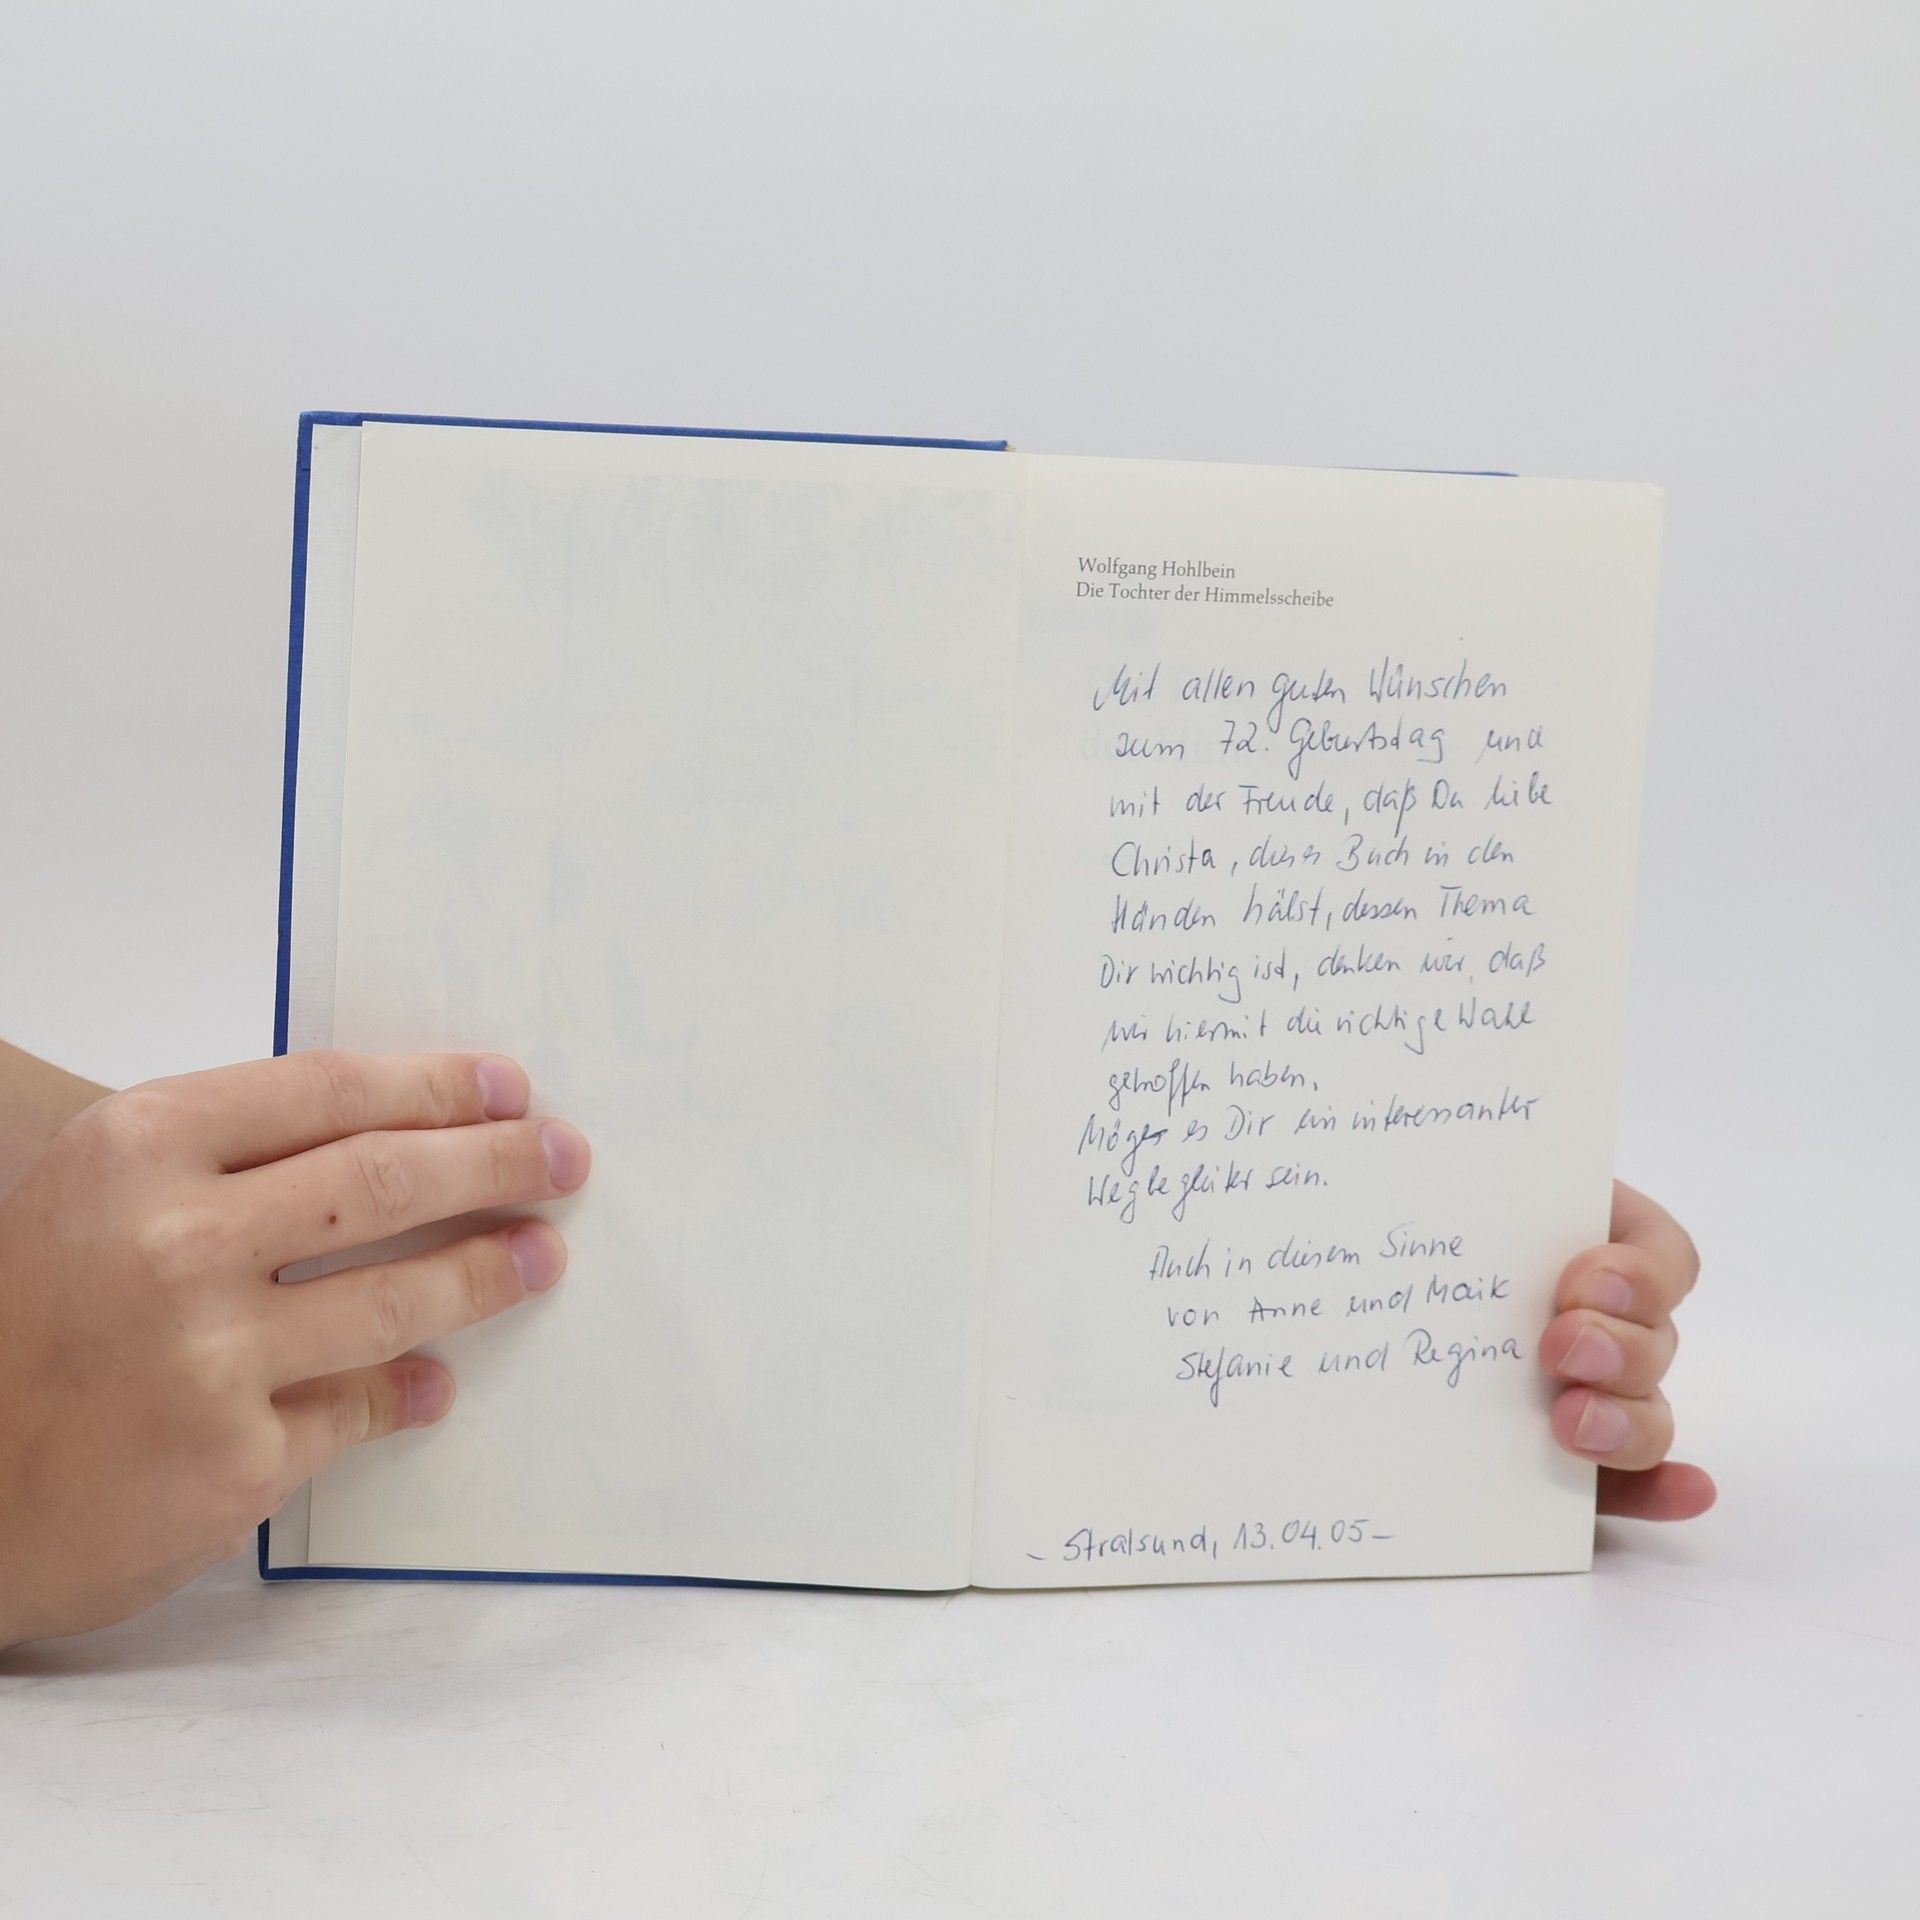 Wolfgang Hohlbein
Die Tochter der Himmelsscheibe
Mit allen guten Wünschen
zum 72. Geburtstag und
mit der Freude, daß Du liebe
Christa, dieses Buch in den
Händen hälst, dessen Thema
Dir wichtig ist, denken wir, daß
wir hiermit die richtige Wahl
getroffen haben.
Möge es Dir ein interessanter
Wegbegleiter sein.
Auch in diesem Sinne
von Anne und Maik
Stefanie und Regina
– Stralsund, 13.04.05 –